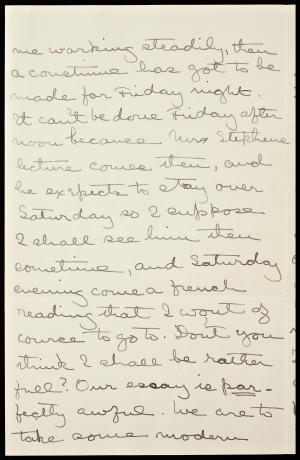 me working steadily, then
a constume has got to be
made for Friday night.
It can't be done Friday after
noon because Mrs Stephens
lecture comes then, and
he expects to stay over
Saturday so I suppose
I shall see him then
sometime, and Saturday
evening comes a french
reading that I won't of
cource to go to. Don't you
think I shall be rather
full? Our essay is par-
fectly awful. We are to
take some modern